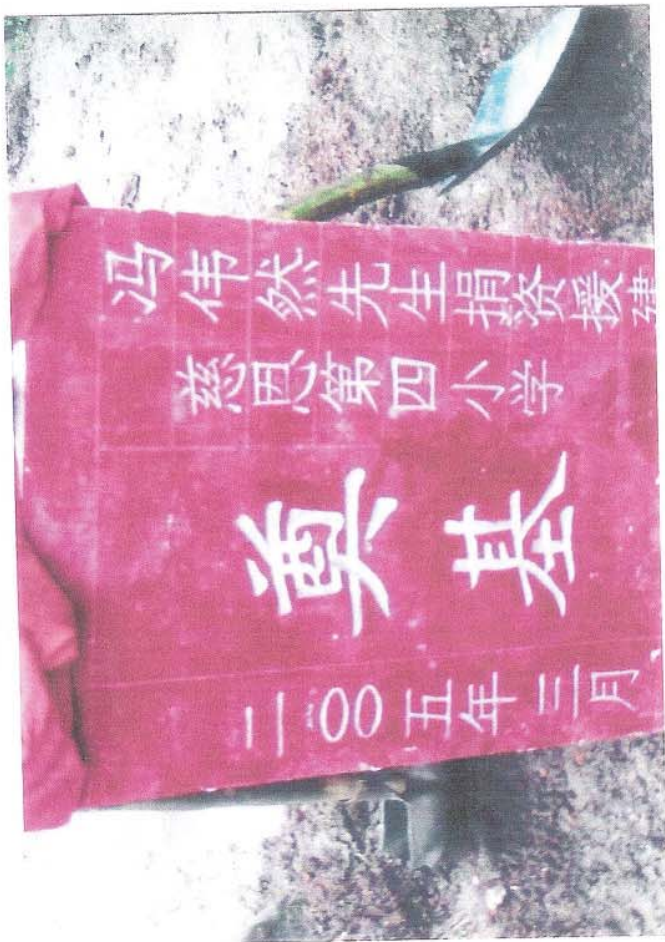 冯伟然先生捐资援建
慈恩第四小学
奠基
二〇〇五年三月